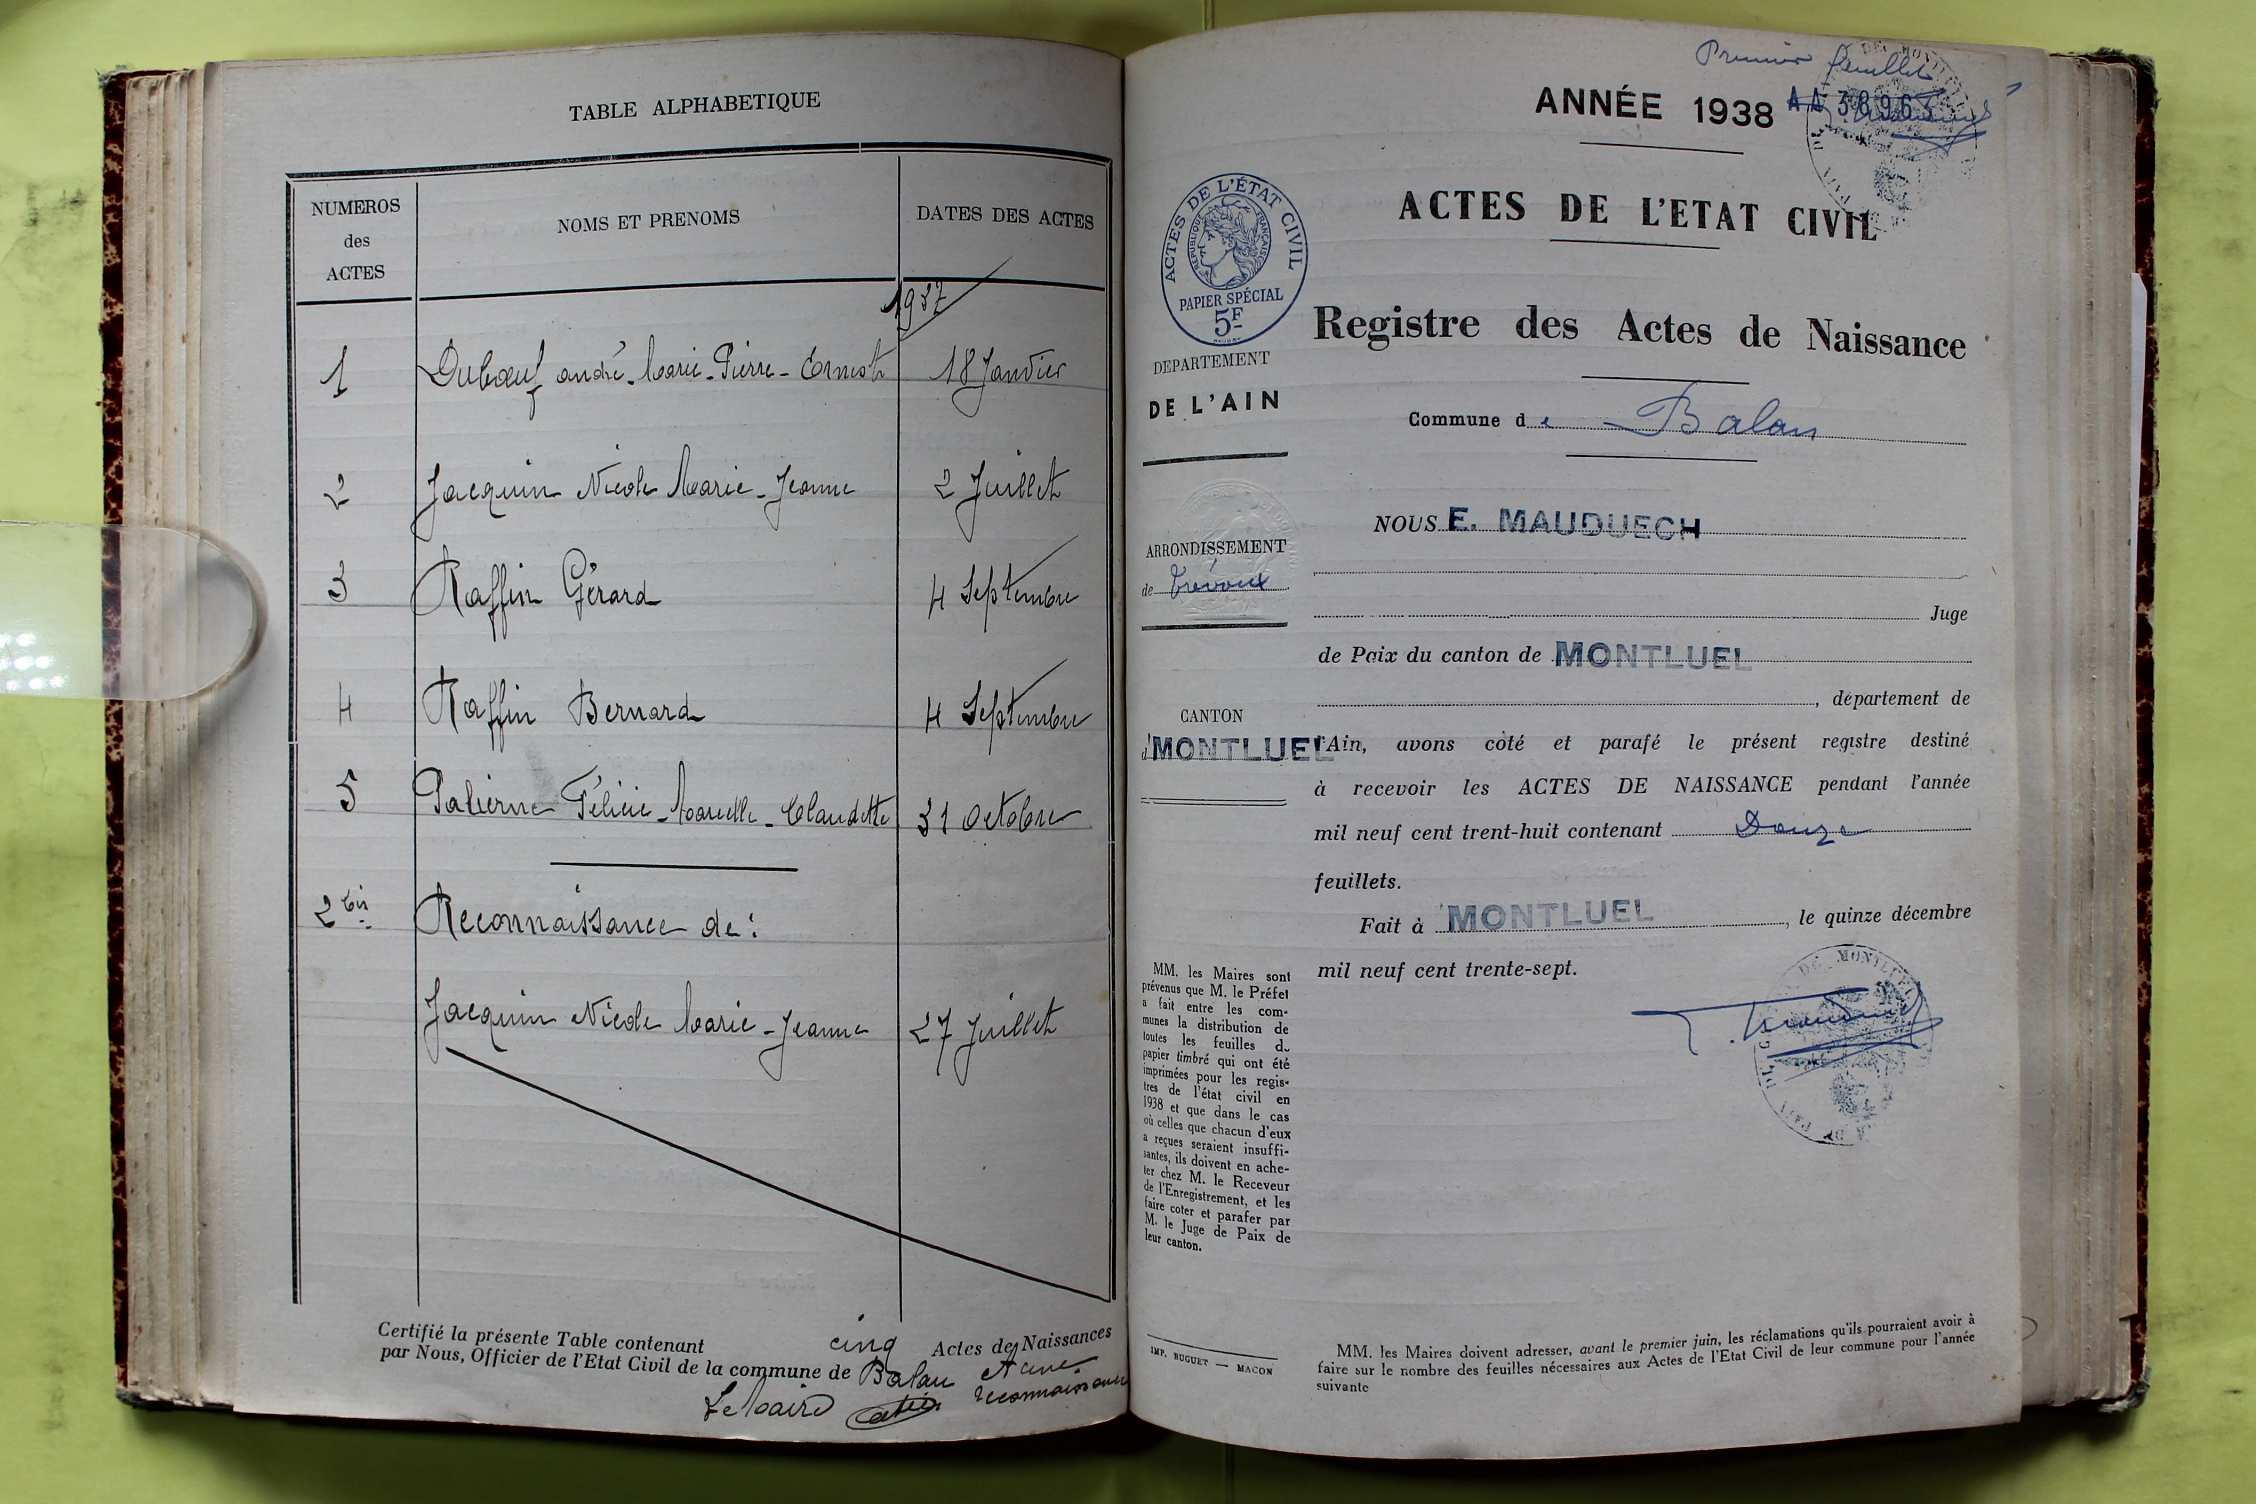 TABLE ALPHABETIQUE
NUMEROS
des
ACTES
NOMS ET PRENOMS
DATES DES ACTES
1937
1 Duboeuf andré-Marie-Pierre-Ernest 18 Janvier
2 Jacquin Nicole Marie-Jeanne 2 Juillet
3 Raffin Gérard 4 Septembre
4 Raffin Bernard 4 Septembre
5 Palierne Félicie-Marcelle-Claudette 31 Octobre
2 bis Reconnaissance de:
Jacquin Nicole Marie-Jeanne 27 Juillet
Certifié la présente Table contenant cinq Actes de Naissances
par Nous, Officier de l'Etat Civil de la commune de Balan et une
reconnaissance
Le Maire
Premier feuillet
ANNÉE 1938 AA 38963
ACTES DE L'ETAT CIVIL
ACTES DE L'ÉTAT CIVIL
REPUBLIQUE FRANÇAISE
PAPIER SPÉCIAL
5F
Registre des Actes de Naissance
DEPARTEMENT
DE L'AIN
Commune de Balan
ARRONDISSEMENT
de Trévoux
CANTON
d MONTLUEL
NOUS E. MAUDUECH
Juge
de Paix du canton de MONTLUEL
, département de
l'Ain, avons coté et parafé le présent registre destiné
à recevoir les ACTES DE NAISSANCE pendant l'année
mil neuf cent trent-huit contenant Douze
feuillets.
Fait à MONTLUEL, le quinze décembre
mil neuf cent trente-sept.
MM. les Maires sont
prévenus que M. le Préfet
a fait entre les com-
munes la distribution de
toutes les feuilles du
papier timbré qui ont été
imprimées pour les regis-
tres de l'état civil en
1938 et que dans le cas
où celles que chacun d'eux
a reçues seraient insuffi-
santes, ils doivent en ache-
ter chez M. le Receveur
de l'Enregistrement, et les
faire coter et parafer par
M. le Juge de Paix de
leur canton.
IMP. BUGUET — MACON
MM. les Maires doivent adresser, avant le premier juin, les réclamations qu'ils pourraient avoir à
faire sur le nombre des feuilles nécessaires aux Actes de l'Etat Civil de leur commune pour l'année
suivante